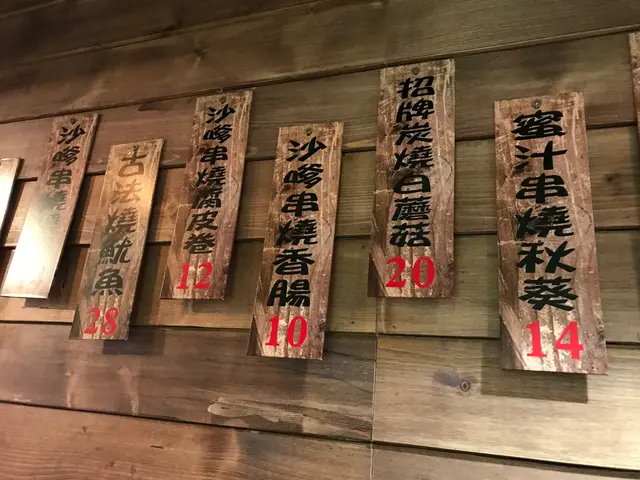 沙嗲串燒
古法燒魷魚
28
沙嗲串燒腐皮卷
12
沙嗲串燒香腸
10
招牌炭燒白蘑菇
20
蜜汁串燒秋葵
14